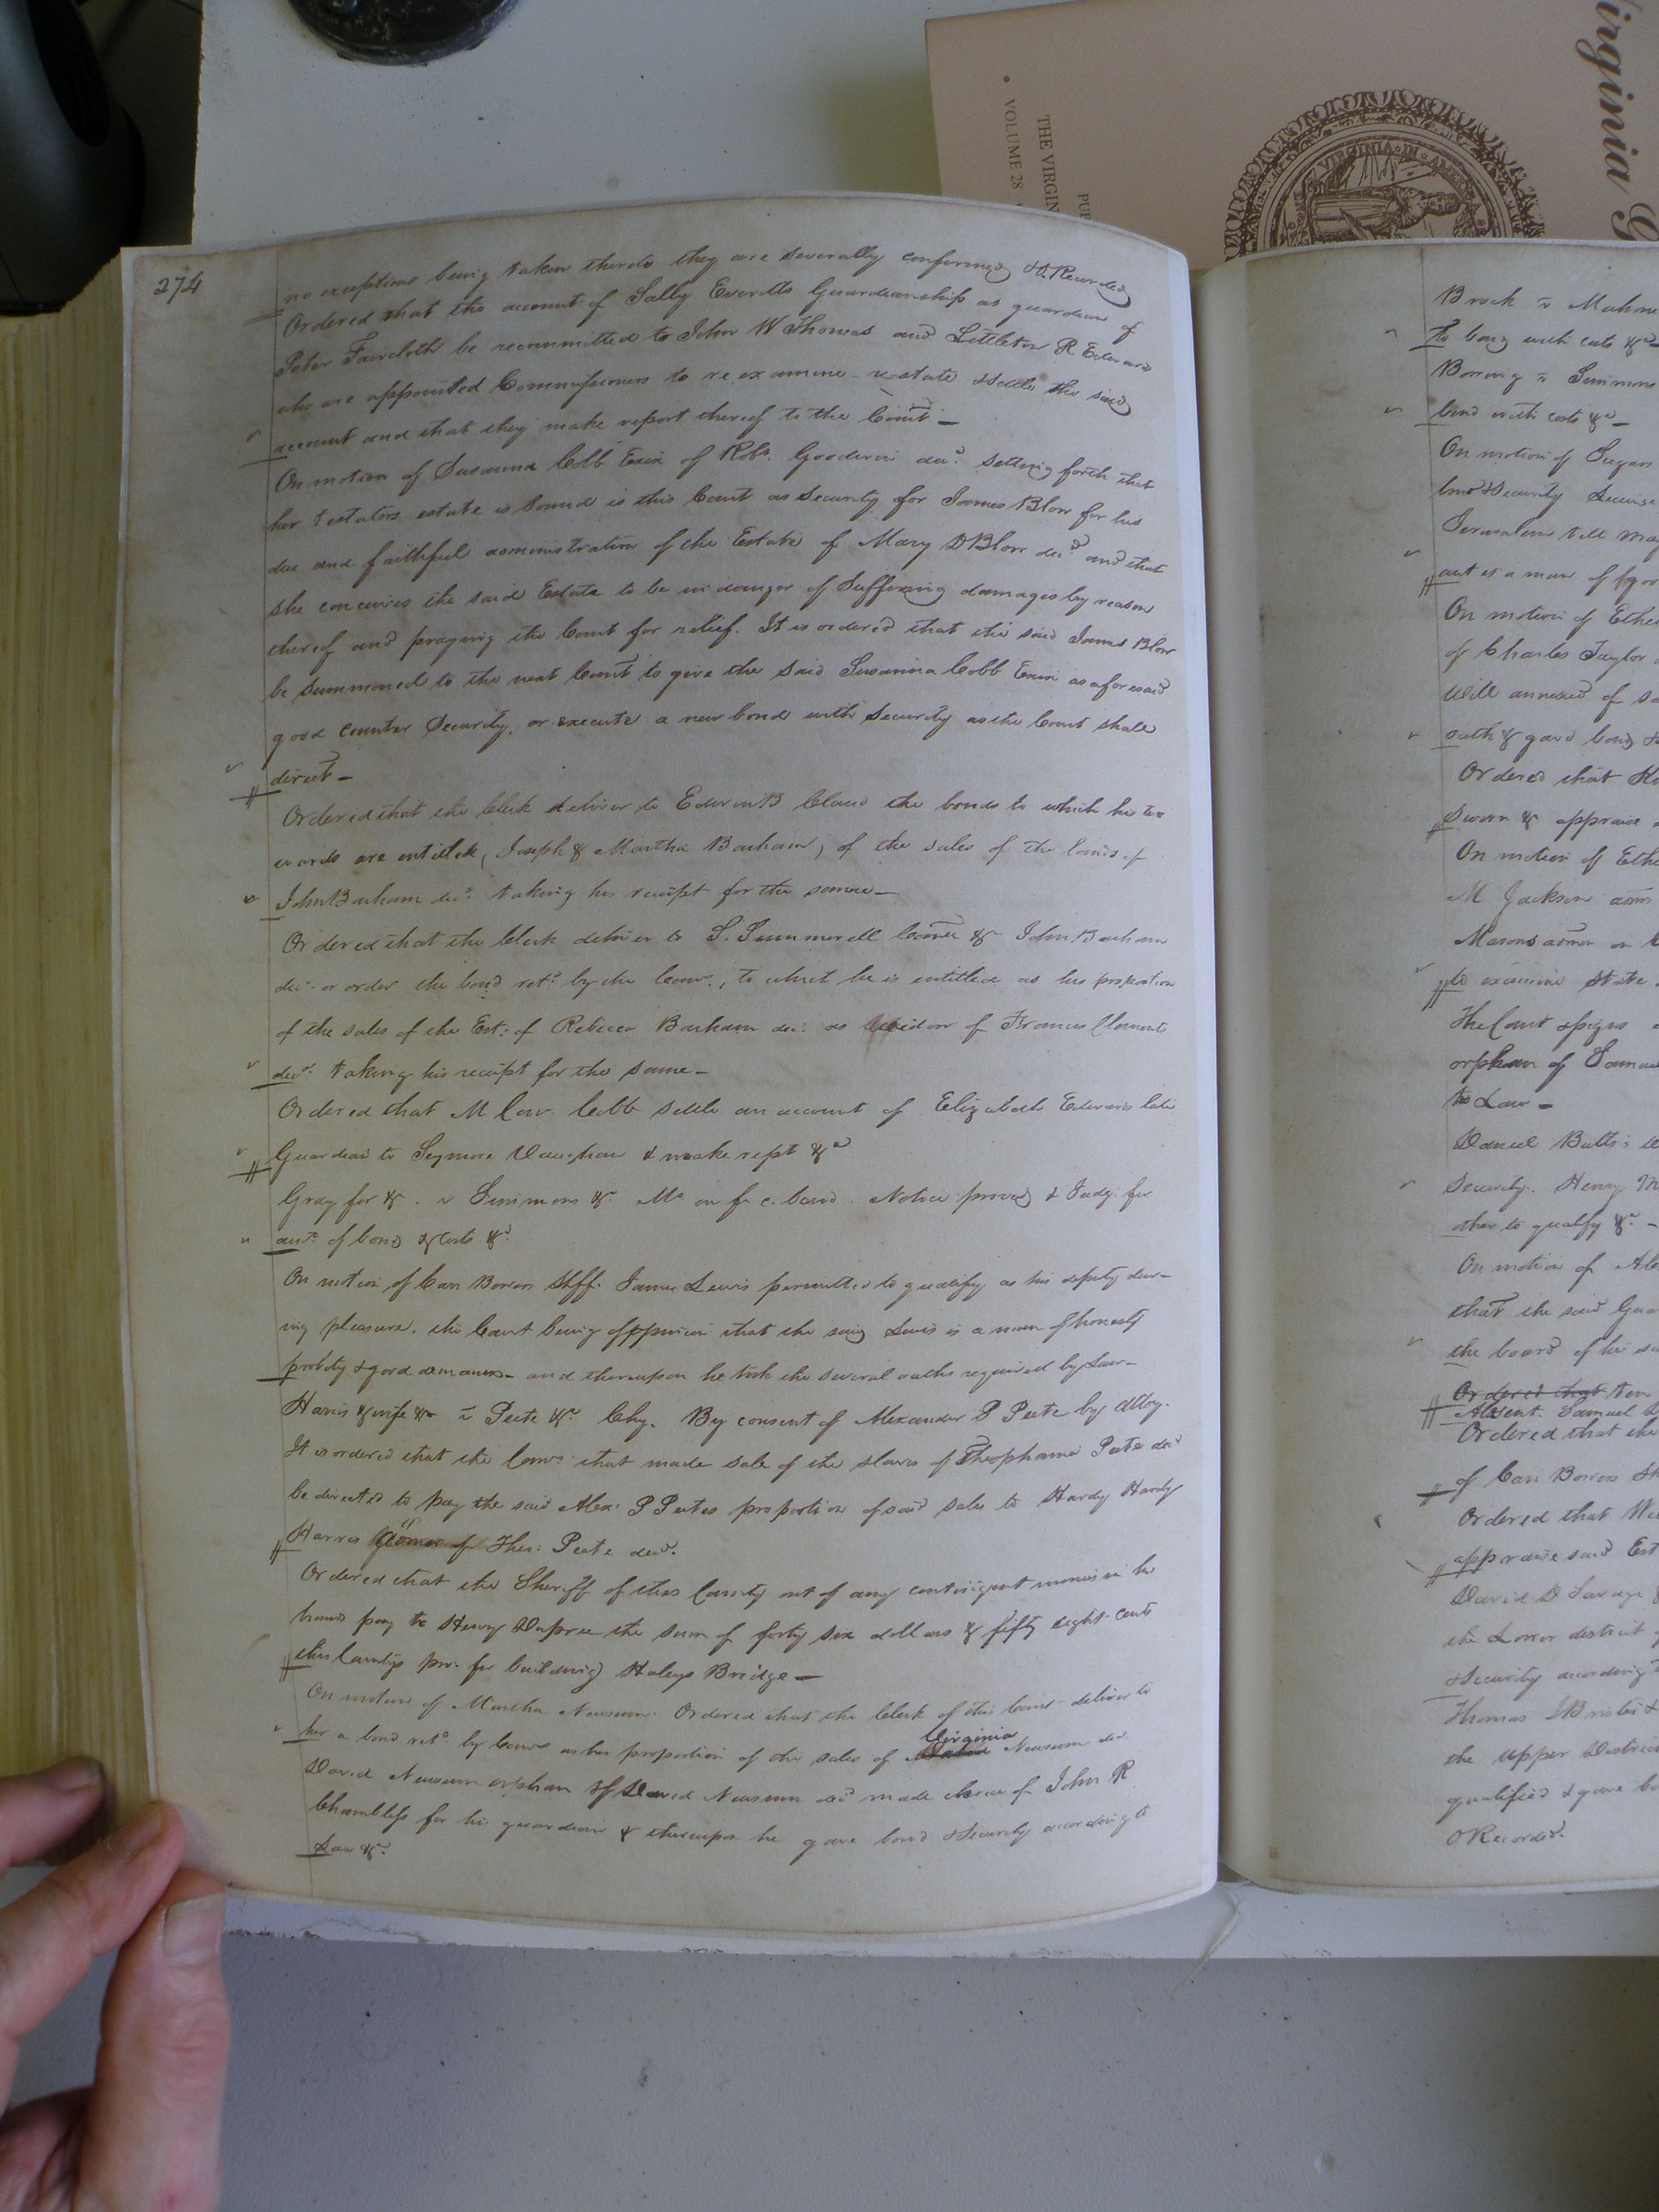 Virginia
VIRGINIA IN AME
THE VIRGIN
VOLUME 28
PU
274
no exceptions being taken thereto they are severally confirmed & O. Recorded
Ordered that the account of Sally Everitts Guardianship as guardian of
Peter Faircloth be recommitted to John W Thomas and Littleton R Edwards
who are appointed Commissioners to re examine re-state & settle the said
account and that they make report thereof to the Court —
On motion of Susanna Cobb Exix of Robt. Goodwin decd. setting forth that
her testators estate is bound is this Court as Security for James Blow for his
due and faithful administration of the Estate of Mary D Blow decd. and that
she conceives the said Estate to be in danger of Suffering damages by reason
thereof and praying the Court for relief. It is ordered that the said James Blow
be summoned to the next Court to give the said Susanna Cobb Exix as aforesaid
good counter Security, or execute a new bond with Security as the Court shall
direct —
Ordered that the Clerk deliver to Edwin B Claud the bonds to which his two
wards are entitled, Joseph & Martha Barham, of the sales of the lands of
John Barham decd. taking his receipt for the same —
Ordered that the Clerk deliver to S. Summerell & John Barham
decd. or order the bond retd. by the Comrs., to which he is entitled as his proportion
of the sales of the Est: of Rebecca Barham decd. as of Francis Clements
decd. taking his receipt for the same —
Ordered that M Cobb settle an account of Elizabeth Edwards late
Guardian to Seymore Vaughan & make rept &c
Gray for &. v Simmons &c. Mo on f. c. bond. Notice proved & Judg. for
amt. of bond & Costs &c.
On motion of Carr Bowers Shff. James Lewis permitted to qualify as his deputy du-
ring pleasure. the Court being of oppinion that the said Lewis is a man of honesty
probity & good demanor — and thereupon he took the several oaths required by Law —
Harris & wife &c v Peete &c. Chy. By consent of Alexander P Peete by Attoy.
It is ordered that the Comrs. that made sale of the slaves of Theophania Peete decd
be directed to pay the said Alex: P Peetes proportion of said sales to Hardy Hardy
Harris of Theo: Peete decd.
Ordered that the Sheriff of this County out of any contingent monies in his
hands pay to Henry Dupree the sum of forty six dollars & fifty eight cents
this Countys pro. for building Haleys Bridge —
On motion of Martha Newsum. Ordered that the Clerk of this Court deliver to
her a bond retd. by Comrs as her proportion of the sales of Virginia Newsum decd.
David Newsum orphan of David Newsum decd made choice of John R
Chambliss for his guardian & thereupon he gave bond & Security according to
Law &c.
Brock v
to bond with costs &c —
Boring v Simmons
bond with costs &c —
On motion of
bond & Security
Jerusalem till
ant is a man of
On motion of Ethe
of Charles Taylor
will annexed of
oath & gave bond
Ordered that
Sworn & appraise
On motion of Ethe
M Jackson
Masons admor on
to examine state
The Court
orphan of Samuel
to Law —
Daniel Butts
Security. Henry
other to qualify &c. —
On motion of Al
that the said Gua
the board of his
Ordered that
Absent. Samuel
Ordered that the
of Carr Bowers Sh
Ordered that
appraise said Est
David D Savage
the Lower district
& Security according
Thomas
the upper District
qualified & gave bo
O Recorded.